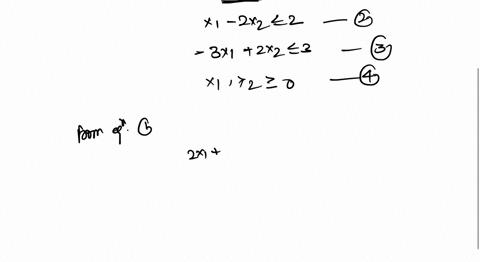 x₁ - 2x₂ ≤ 2 — ②
- 3x₁ + 2x₂ ≤ 3 — ③
x₁, x₂ ≥ 0 — ④
from eqⁿ. ①
2x₁ +